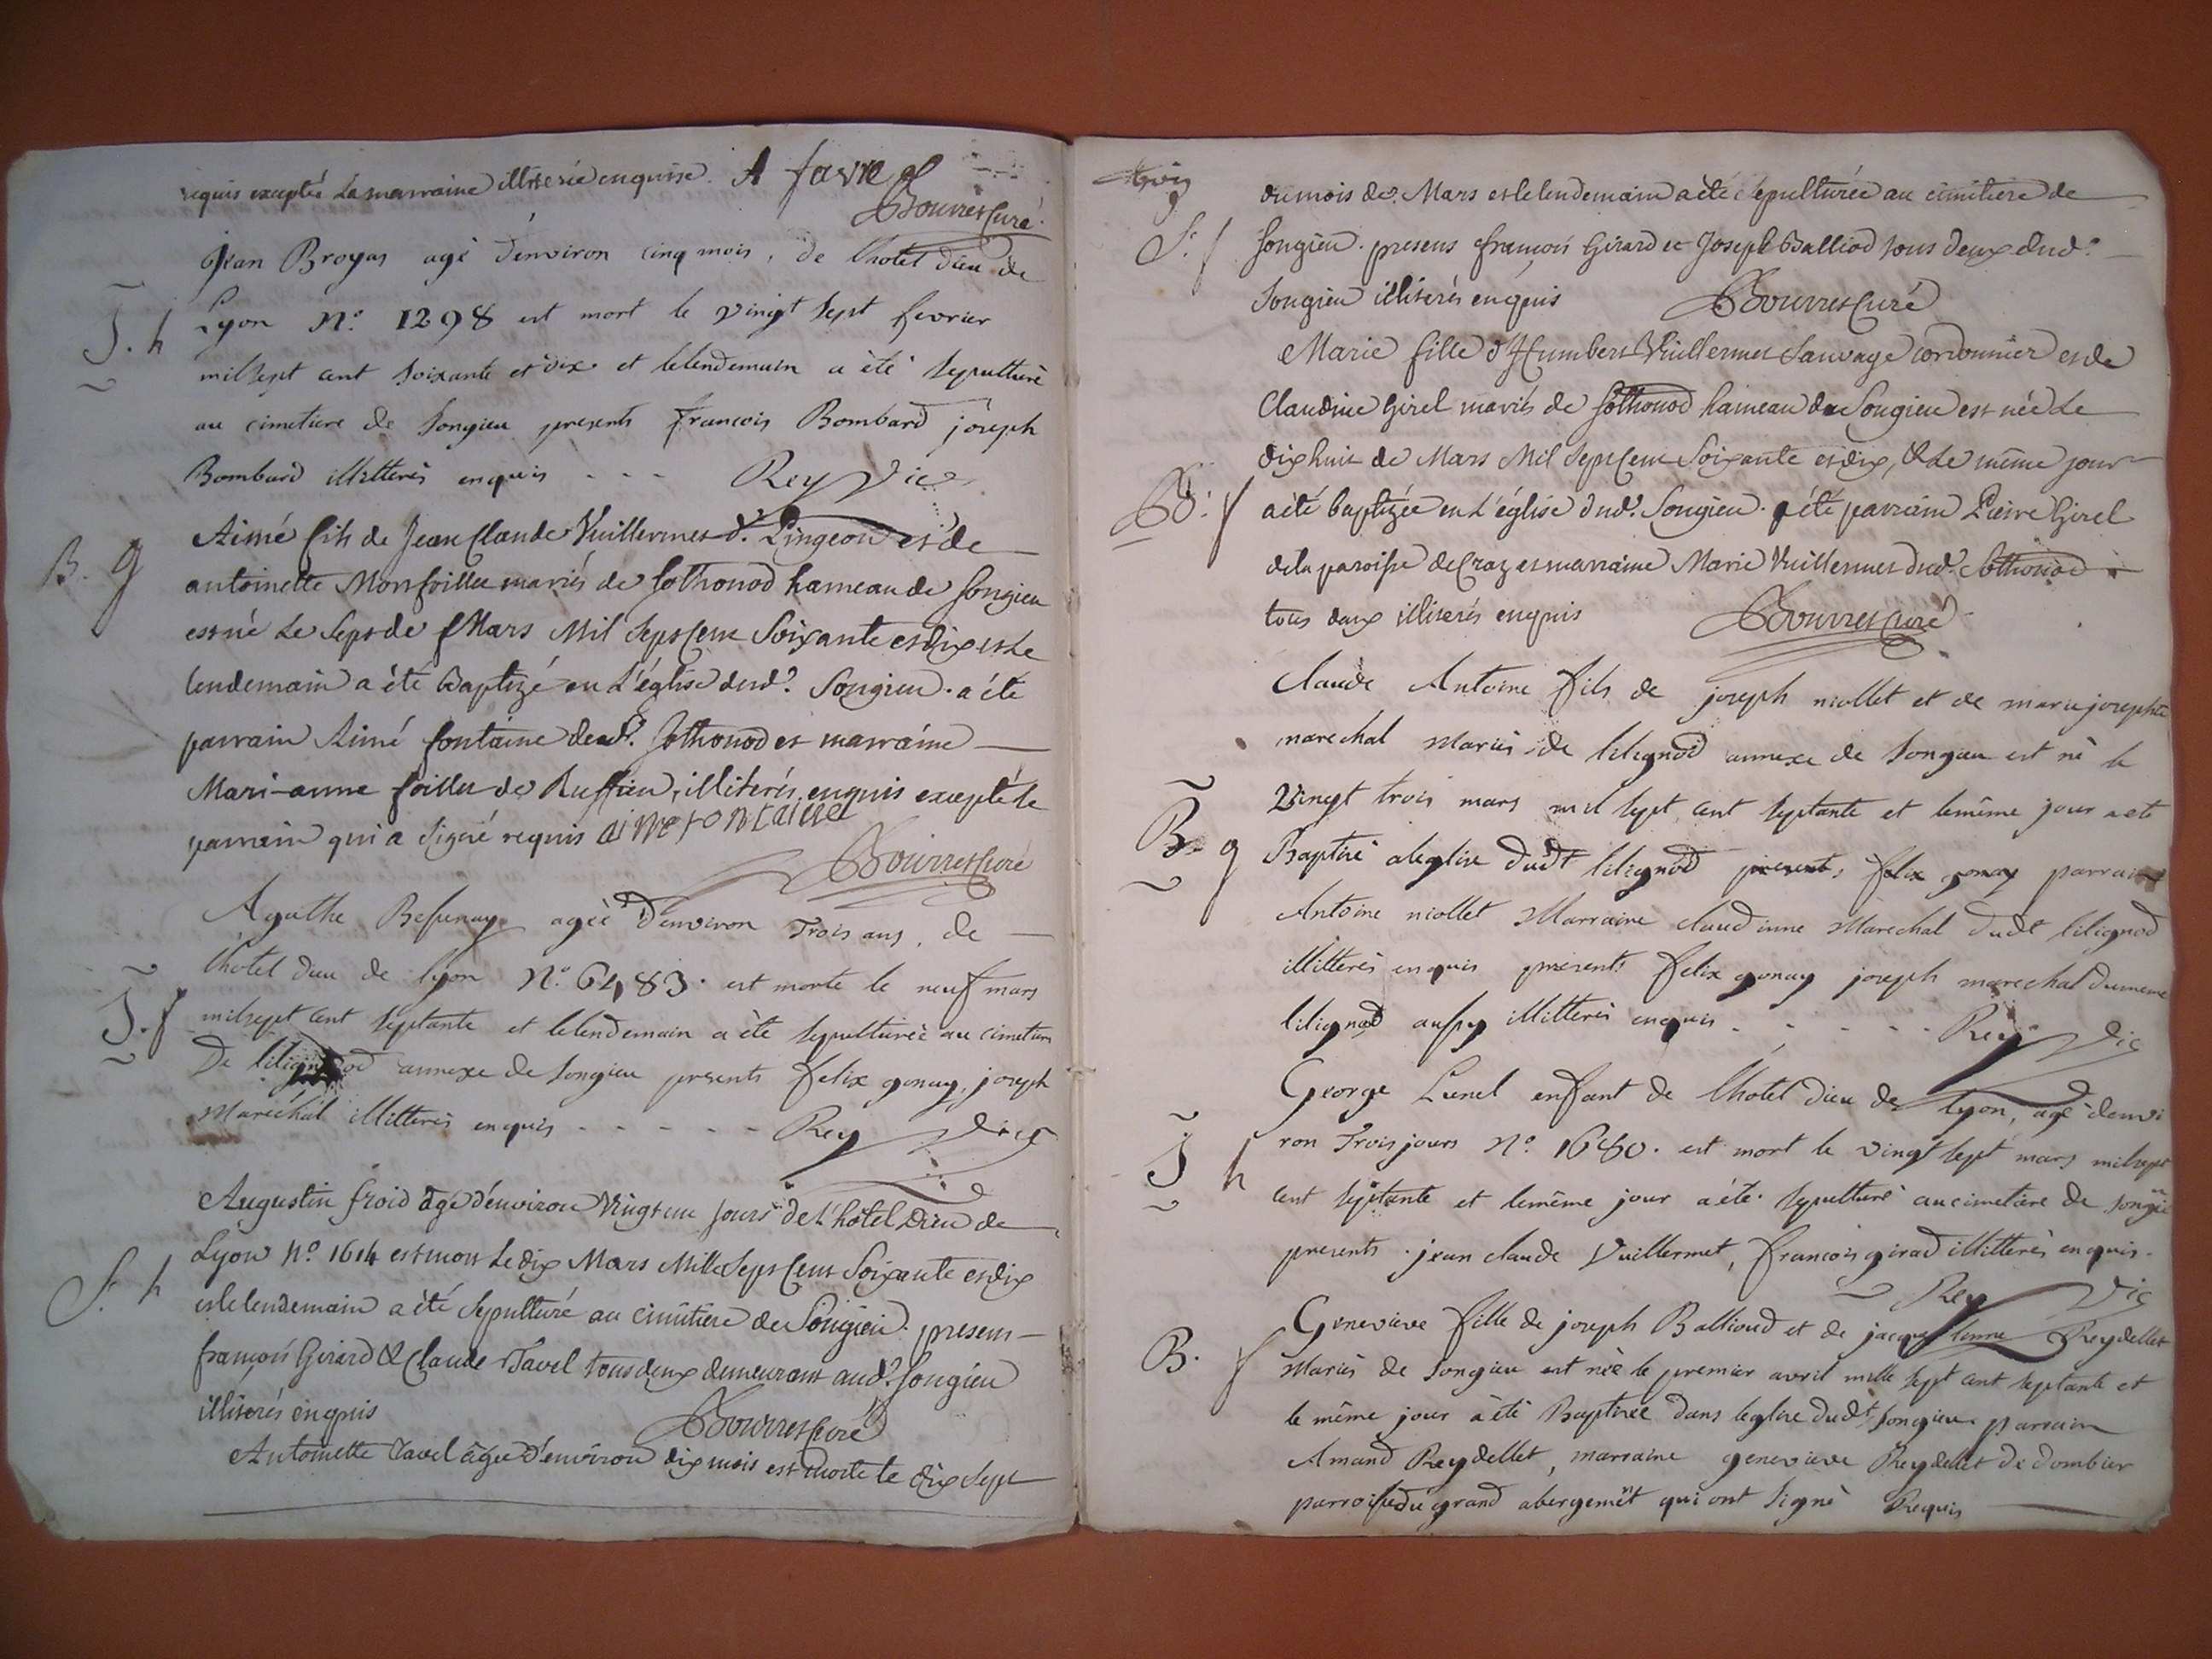 requis exceptés la marraine illiterée enquise. A favre
Bouvret Curé
Jean Broyas agé d'environ cinq mois, de l'hotel dieu de
S. h
Lyon N.o 1298 est mort le vingt sept fevrier
mil sept cent soixante et dix et le lendemain a été sepulturé
au cimetiere de Songieu presents francois Bombard joseph
Bombard illitterés enquis - - - Rey Vic
Aimé fils de Jean Claude Vuillermet d. Pingeon et de
B. g
antoinette Monfoillu mariés de Sothonod hameau de Songieu
est né le Sept de Mars Mil Sept Cent Soixante et dix et le
lendemain a été Baptizé en l'église dud. Songieu. a été
parrain Aimé fontaine dud. Sothonod et marraine
Mari-anne foillu de Ruffieu, illiterés enquis excepté le
parrain qui a signé requis aime fontaine
Bouvret Curé
Agathe agée d'environ Trois ans, de
l'hotel dieu de lyon N.o 6483. est morte le neuf mars
S. f
mil sept cent septante et le lendemain a été sepulturée au cimetiere
De lilignod annexe de Songieu presents felix gonay, joseph
Maréchal illitterés enquis - - - - - Rey Vic
Augustin froid agé d'environ Vingt un jours de l'hôtel Dieu de
Lyon N.o 1614 est mort le dix Mars Mille Sept Cent Soixante et dix
S. h
et le lendemain a été sepulturé au cimitiere de Songieu. presens
françois Girard & Claude Tavel tous deux demeurant aud. Songieu
illiterés enquis
Bouvret Curé
Antoinette Tavel agée d'environ dix mois est morte le dix sept
du mois de Mars et le lendemain a été sepulturée au cimitiere de
S. f
Songieu. presens françois Girard et Joseph Balliod tous deux dud.
Songieu illiterés enquis Bouvret Curé
Marie fille d'Humbert Vuillermet Sauvage cordonnier et de
Claudine Girel mariés de Sothonod hameau de Songieu est née le
dix huit de Mars Mil Sept Cent Soixante et dix, & le même jour
B. f
a été baptizée en l'église dud. Songieu. a été parrain Pierre Girel
de la paroisse de Craz et marraine Marie Vuillermet dud. Sothonod
tous deux illiterés enquis Bouvret Curé
Claude Antoine fils de joseph niollet et de marie josephte
marechal mariés de lilignod annexe de Songieu est né le
Vingt trois mars mil sept cent septante et le même jour a eté
B. g
Baptisé a leglise dudt lilignod presents felix gonay parrain
Antoine niollet Marraine claudinne Marechal dudt lilignod
illitterés enquis presents felix gonay joseph marechal du meme
lilignod aussy illitterés enquis - - - - - Rey Vic
George Lunel enfant de l'hotel dieu de lyon, agé denvi
S h
ron Trois jours N.o 1680. est mort le vingt sept mars mil sept
cent septante et le même jour a été sepulturé au cimetiere de songieu
presents. jean claude Vuillermet, francois girad illitterés enquis.
Rey Vic
Genevieve fille de joseph Ballioud et de jacquelinne Reydellet
B. f
Mariés de Songieu est née le premier avril mille sept cent septante et
le même jour a été Baptisée dans leglise dudt Songieu parrain
Amand Reydellet, marraine genevieve Reydellet de dombier
parroisse du grand abergemēt qui ont signé Requis